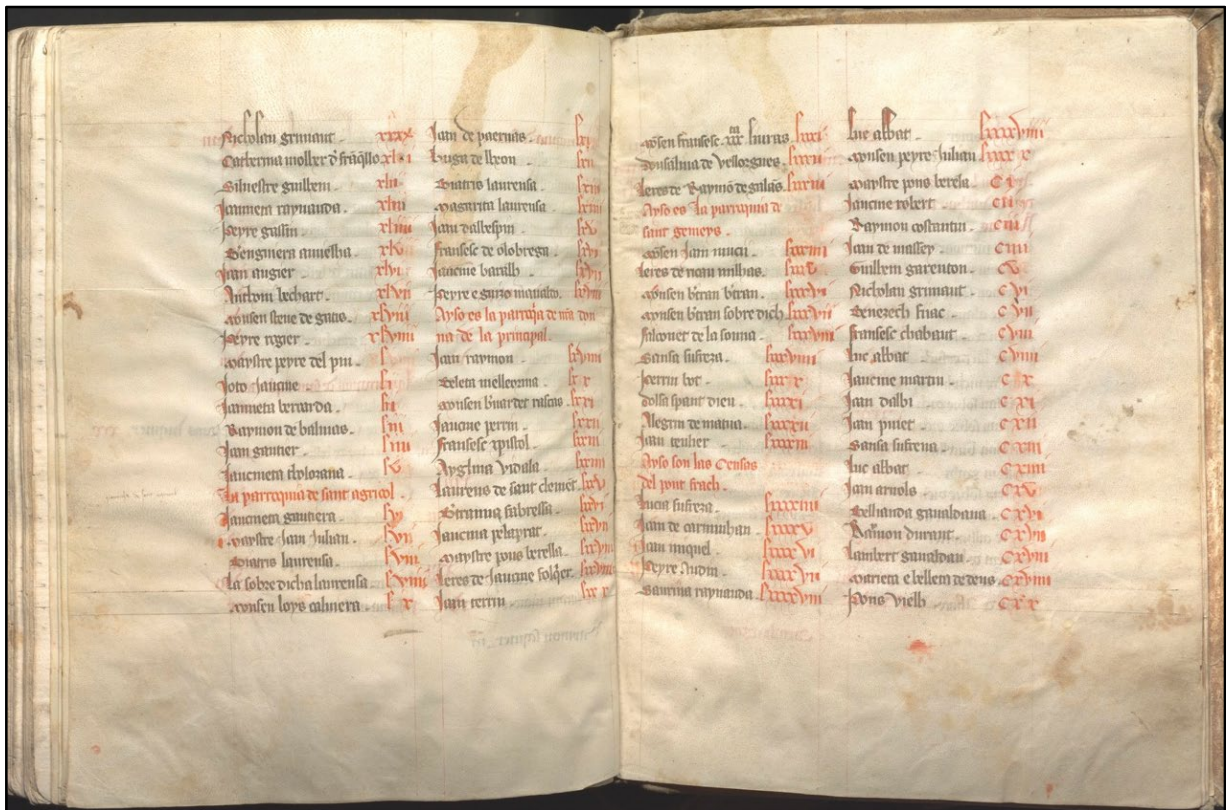 Nickolau grimaut . xxxx
Catherina moller d' xli
Silvestre guilhem . xlii
Jaumeta raynauda . xliii
Peyre gassin . xliiii
Berguiera xlv
Jean augier . xlvi
Anthoni bechart . xlvii
Monsen de gatis . xlviii
Peyre rogier . xlviiii
Maystre peyre del pin . l
Joto Jaucme . li
Jaumeta berarda . lii
Raymon de balmas . liii
Jean gautier . liiii
Jaucmeta lv
La parroquia de sant agricol
Jaucmeta gautiera . lvi
Maystre Jam Julian . lvii
Biatris laurensa . lviii
La sobre dicha laurensa . lviiii
Monsen loys calviera . l x
Jam de paernas . lxi
huga de lxii
Biatris laurensa . lxiii
Margarita laurensa . lxiiii
Jam lxv
Fransesc de olobrega . lxvi
Jaucme baralh . lxvii
Peyre e lxviii
Ayso es la parroqia de nra don
na de la principal .
Jam raymon . lxviiii
lx x
Monsen rascas . lxxi
Jaucme perrin . lxxii
Fransesc xpistol . lxxiii
Ayglina Vidala . lxxiiii
Laurens de sant clemens . lxxv
fabressa . lxxvi
Jaucma pelaprat . lxxvii
Maystre pons berella . lxxviii
Leres de Jaucme lxxviiii
Jam terrin lxx x
Mosen fransesc liuras . lxxxi
de Vellorgues . lxxxii
Leres de Raymon de lxxxiii
Ayso es la parroquia de
sant genieys .
Mosen Jam lxxxiiii
Leres de milhas . lxxxv
Monsen b'tran b'tran . lxxxvi
Monsen b'tran sobre dich . lxxxvii
Falconet de la sonna . lxxxviii
Sansa sufreza . lxxxviiii
Perrin bot . lxxx x
dolsa dieu . lxxxxi
Alegria de lxxxxii
Jam teulier . lxxxxiii
Ayso son las Censas
del pont frach .
Lucia sufreza . lxxxxiiii
Jam de carmnihan . lxxxxv
Jam miquel . lxxxxvi
Peyre Audin . lxxxxvii
Saurina raynauda . lxxxxviii
Luc albat . lxxxxviiii
Monsen peyre Julian . lxxxx x
Maystre pons berela . c i
Jaucme robert . c ii
Raymon costantin . c iii
Jam de massey . c iiii
Guilhem garenton . c v
Nickolau grimaut . c vi
Benezech friac . c vii
Fransesc chabaut . c viii
Luc albat c viiii
Jaucme martin . c x
Jam dalbi c xi
Jam pinet . c xii
Sansa sufrena . c xiii
Luc albat . c xiiii
Jam arnols . c xv
Belhanda gavaldana . c xvi
Raimon durant . c xvii
Lambert gavaldan . c xviii
Marieta e bellem de deus . c xviiii
Pons Vielh . c x x